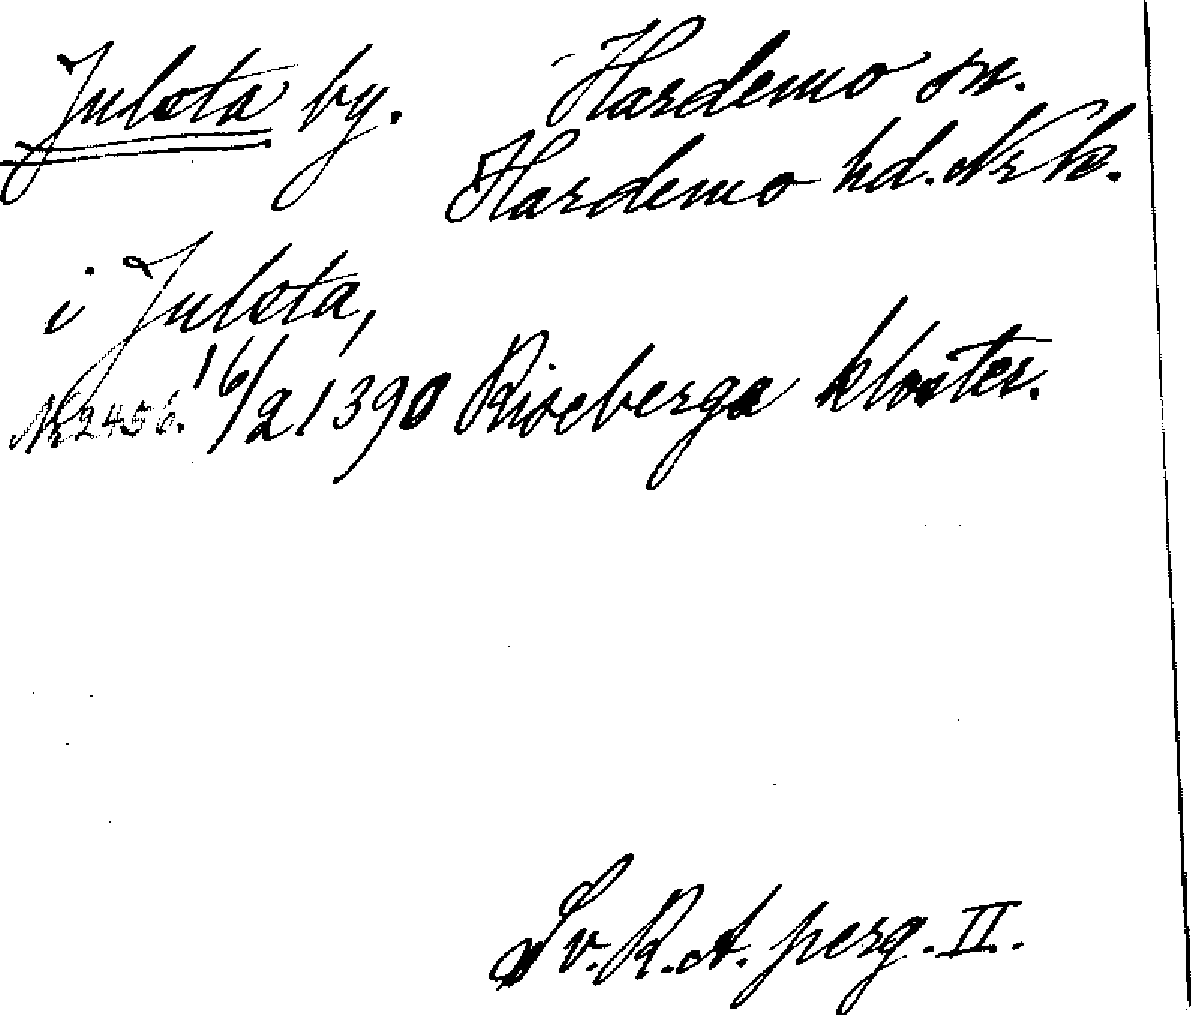 Julsta by. Hardemo sn.
Hardemo hd. Nrk.
i Julsta,
Nr 2456. 16/2 1390 Riseberga kloster.
Sv. R. A. perg. II.